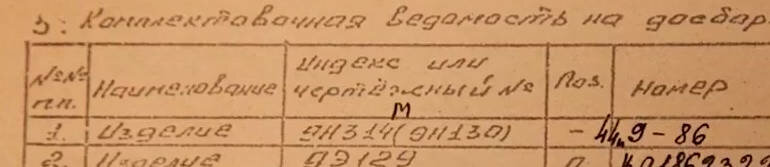 3. Комплектовочная ведомость на досбор
№№ п.п. Наименование Индекс или чертёжный № Поз. Номер
1. Изделие 9Н314М(9Н130) - 44м9-86
2. Изделие 9Э129